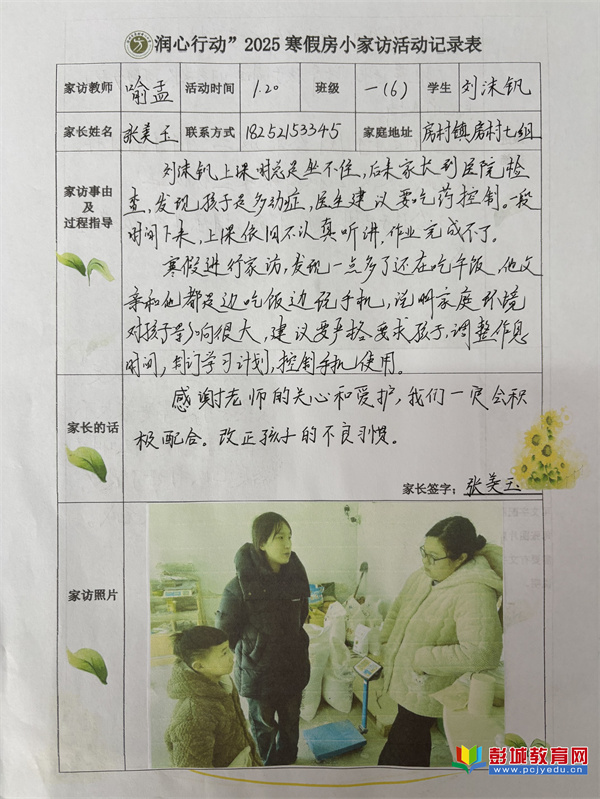 润心行动”2025寒假房小家访活动记录表
家访教师 喻孟 活动时间 1.20 班级 一(6) 学生 刘沫钒
家长姓名 张美玉 联系方式 18252153345 家庭地址 房村镇房村七组
家访事由
及
过程指导
刘沫钒上课时总是坐不住,后来家长到医院检
查,发现孩子是多动症,医生建议要吃药控制。一段
时间下来,上课依旧不认真听讲,作业完成不了。
寒假进行家访,发现一点多了还在吃午饭,他父
亲和他都是边吃饭边玩手机,说明家庭环境
对孩子影响很大,建议要严格要求孩子,调整作息
时间,制订学习计划,控制手机使用。
家长的话
感谢老师的关心和爱护,我们一定会积
极配合。改正孩子的不良习惯。
家长签字:张美玉
家访照片
彭城教育网
www.pcjyedu.cn